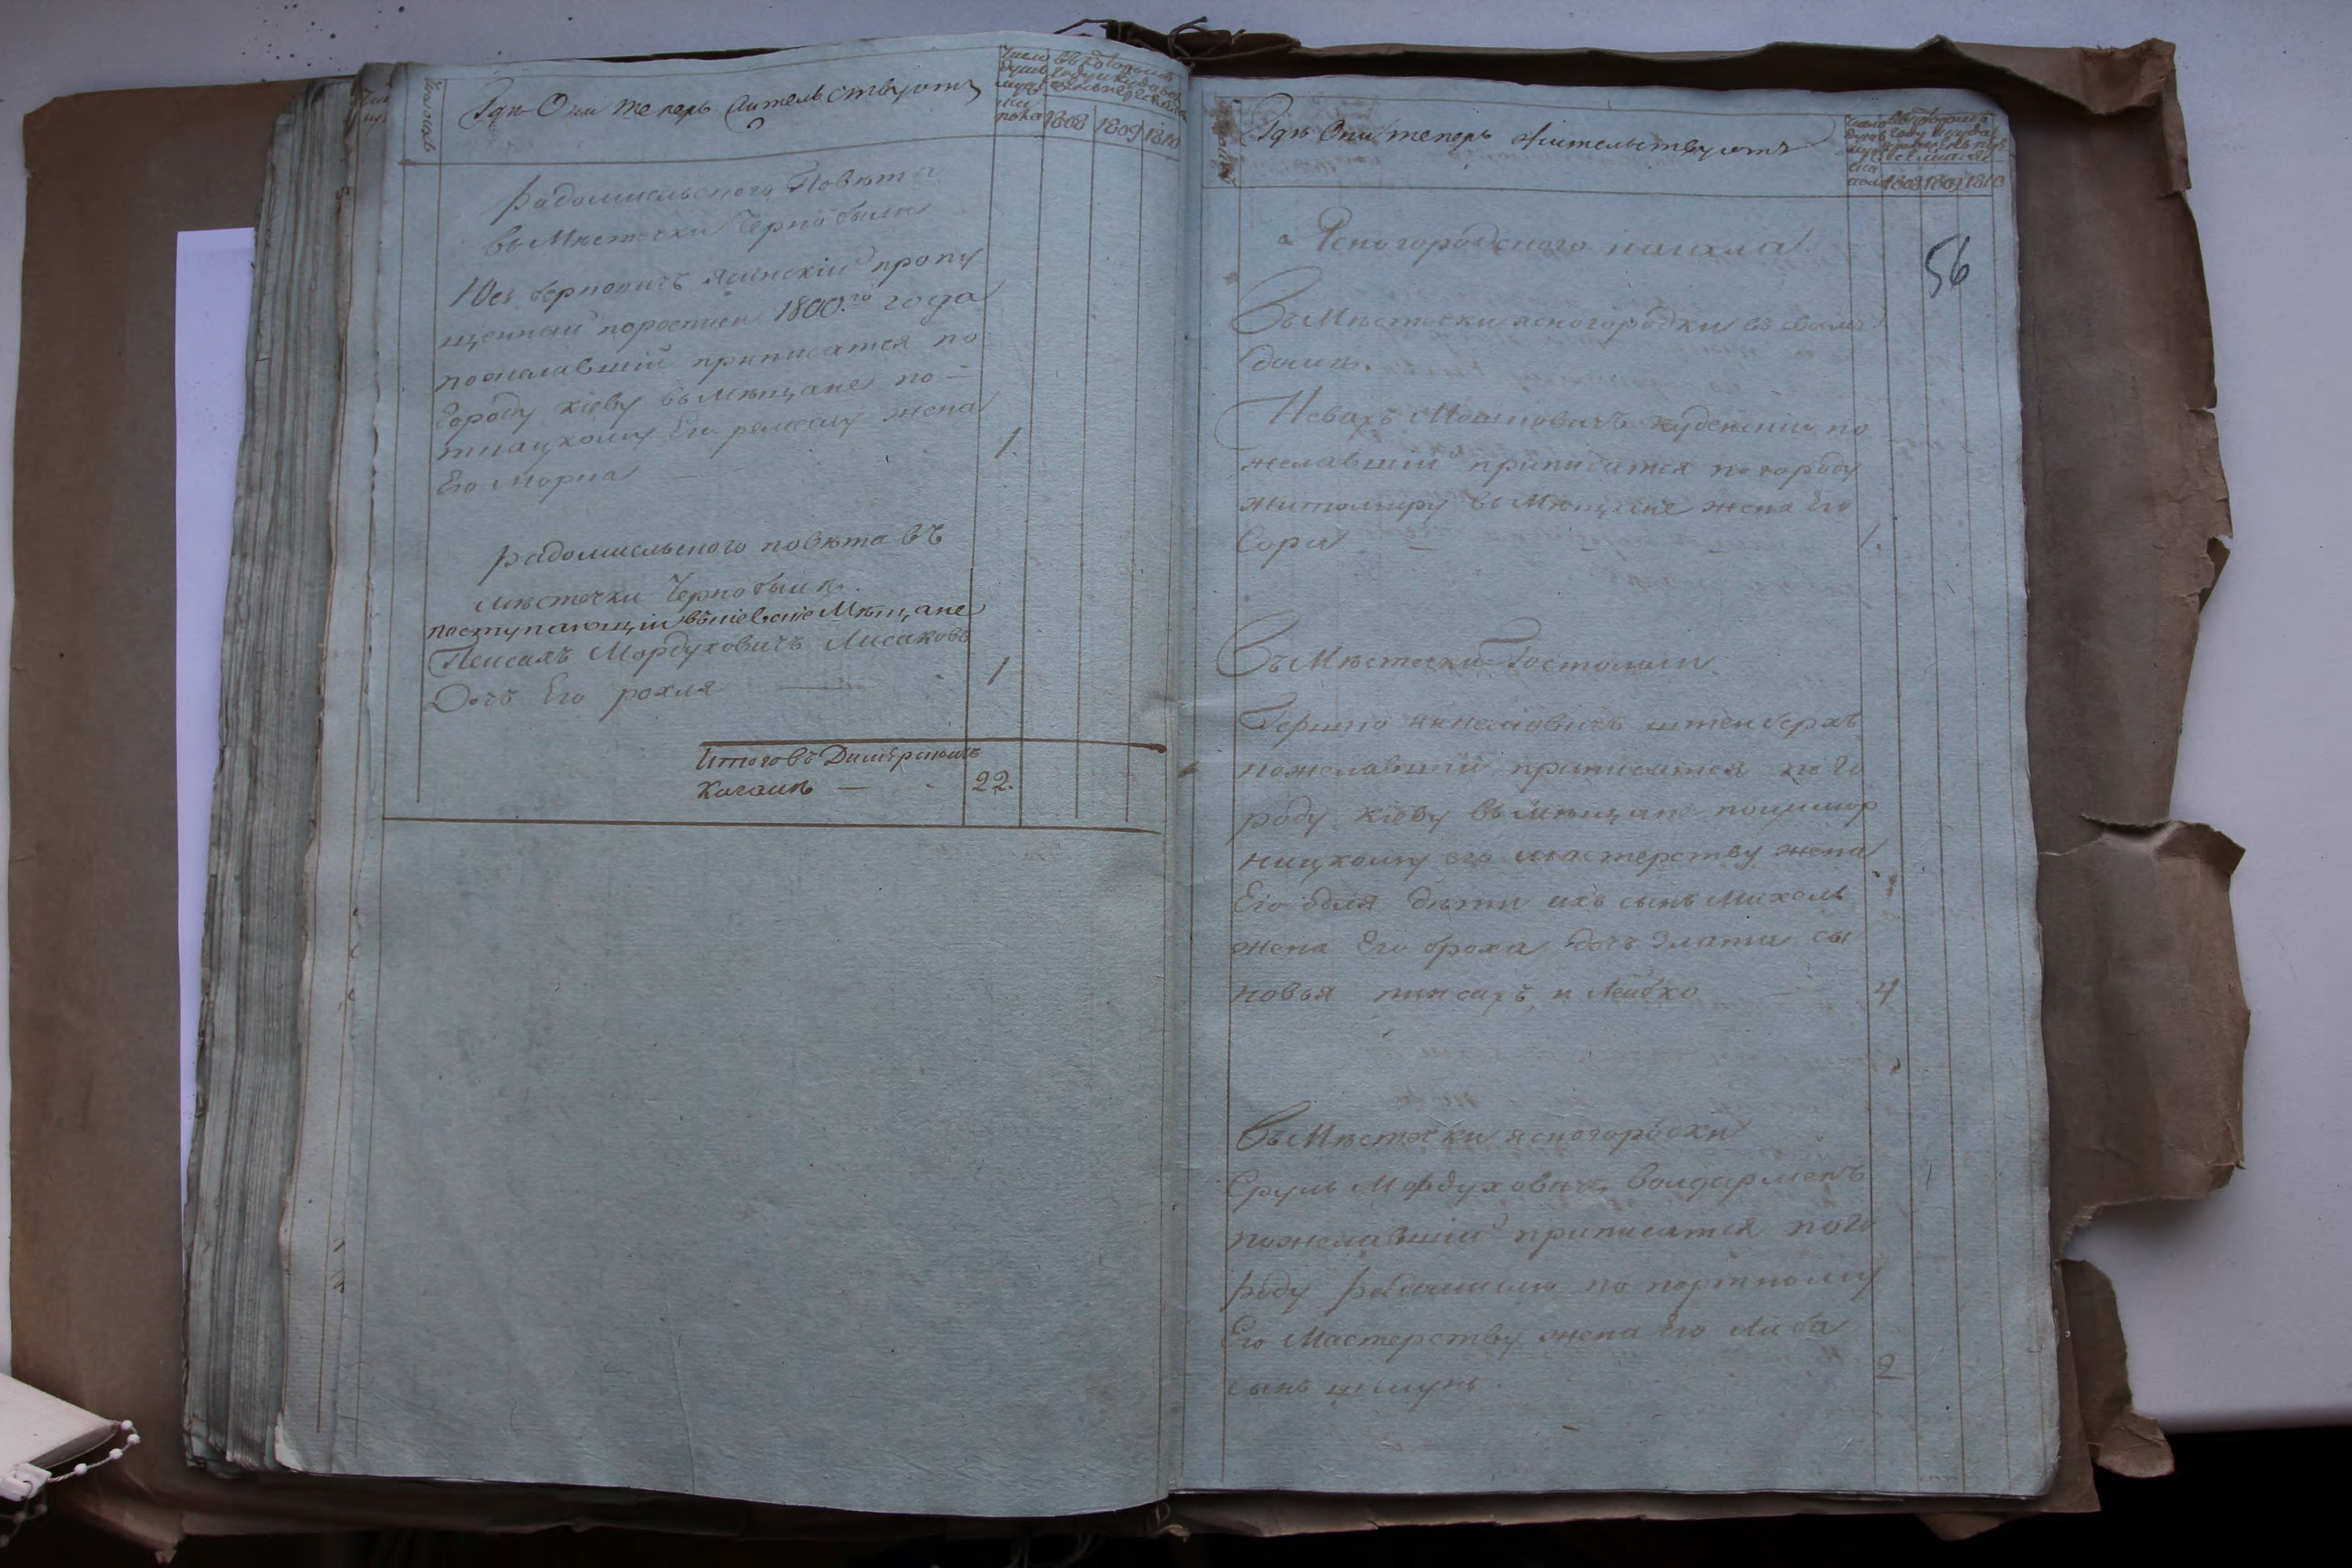 Гдѣ Они теперь жительствуютъ
Число
душъ
муж
1808 1809 1810
Радомисльского Повѣта
въ Мѣстечки Чернобыли
Юсь Берковичъ Ясинскій пропу
щенный поросписи 1800.го года
пожелавшій приписатся по
Городу Кіеву въ Мѣщане по-
ткацкому Его ремеслу жена
Его Морка — 1.
Радомисльского повѣта въ
мѣстечки Чернобылѣ.
поступающій Мѣщане
Пейсахъ Мордуховичъ Лисаковъ
Дочъ Его рохля — 1
Итого въ Димѣрскомъ
Кагалѣ — 22.
Гдѣ Они теперь жительствуютъ
Число
душъ
1808 1809 1810
56
Ясногородского кагала
Въ Мѣстечки ясногородки въ своемъ
домѣ.
Невахъ Мошковичъ по
желавшій приписатся погороду
житомиру въ Мѣщане жена Его
Сора — 1.
Въ Мѣстечки Гостомли.
Гершко штенберхъ
пожелавшій приписатся по го
роду Кіеву въ мѣщане
ницкому его мастерству жена
Его дѣти ихъ сынъ Михель
жена Его броха дочъ Злата сы
новья и Лейбко — 4
Въ Мѣстечки ясногородки
Сруль Мордуховичъ
пожелавшій приписатся пого
роду Радомислю по портному
Его Мастерству жена Его Либа
сынъ 2